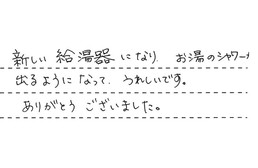 新しい給湯器になり、お湯のシャワーが
出るようになって、うれしいです。
ありがとうございました。